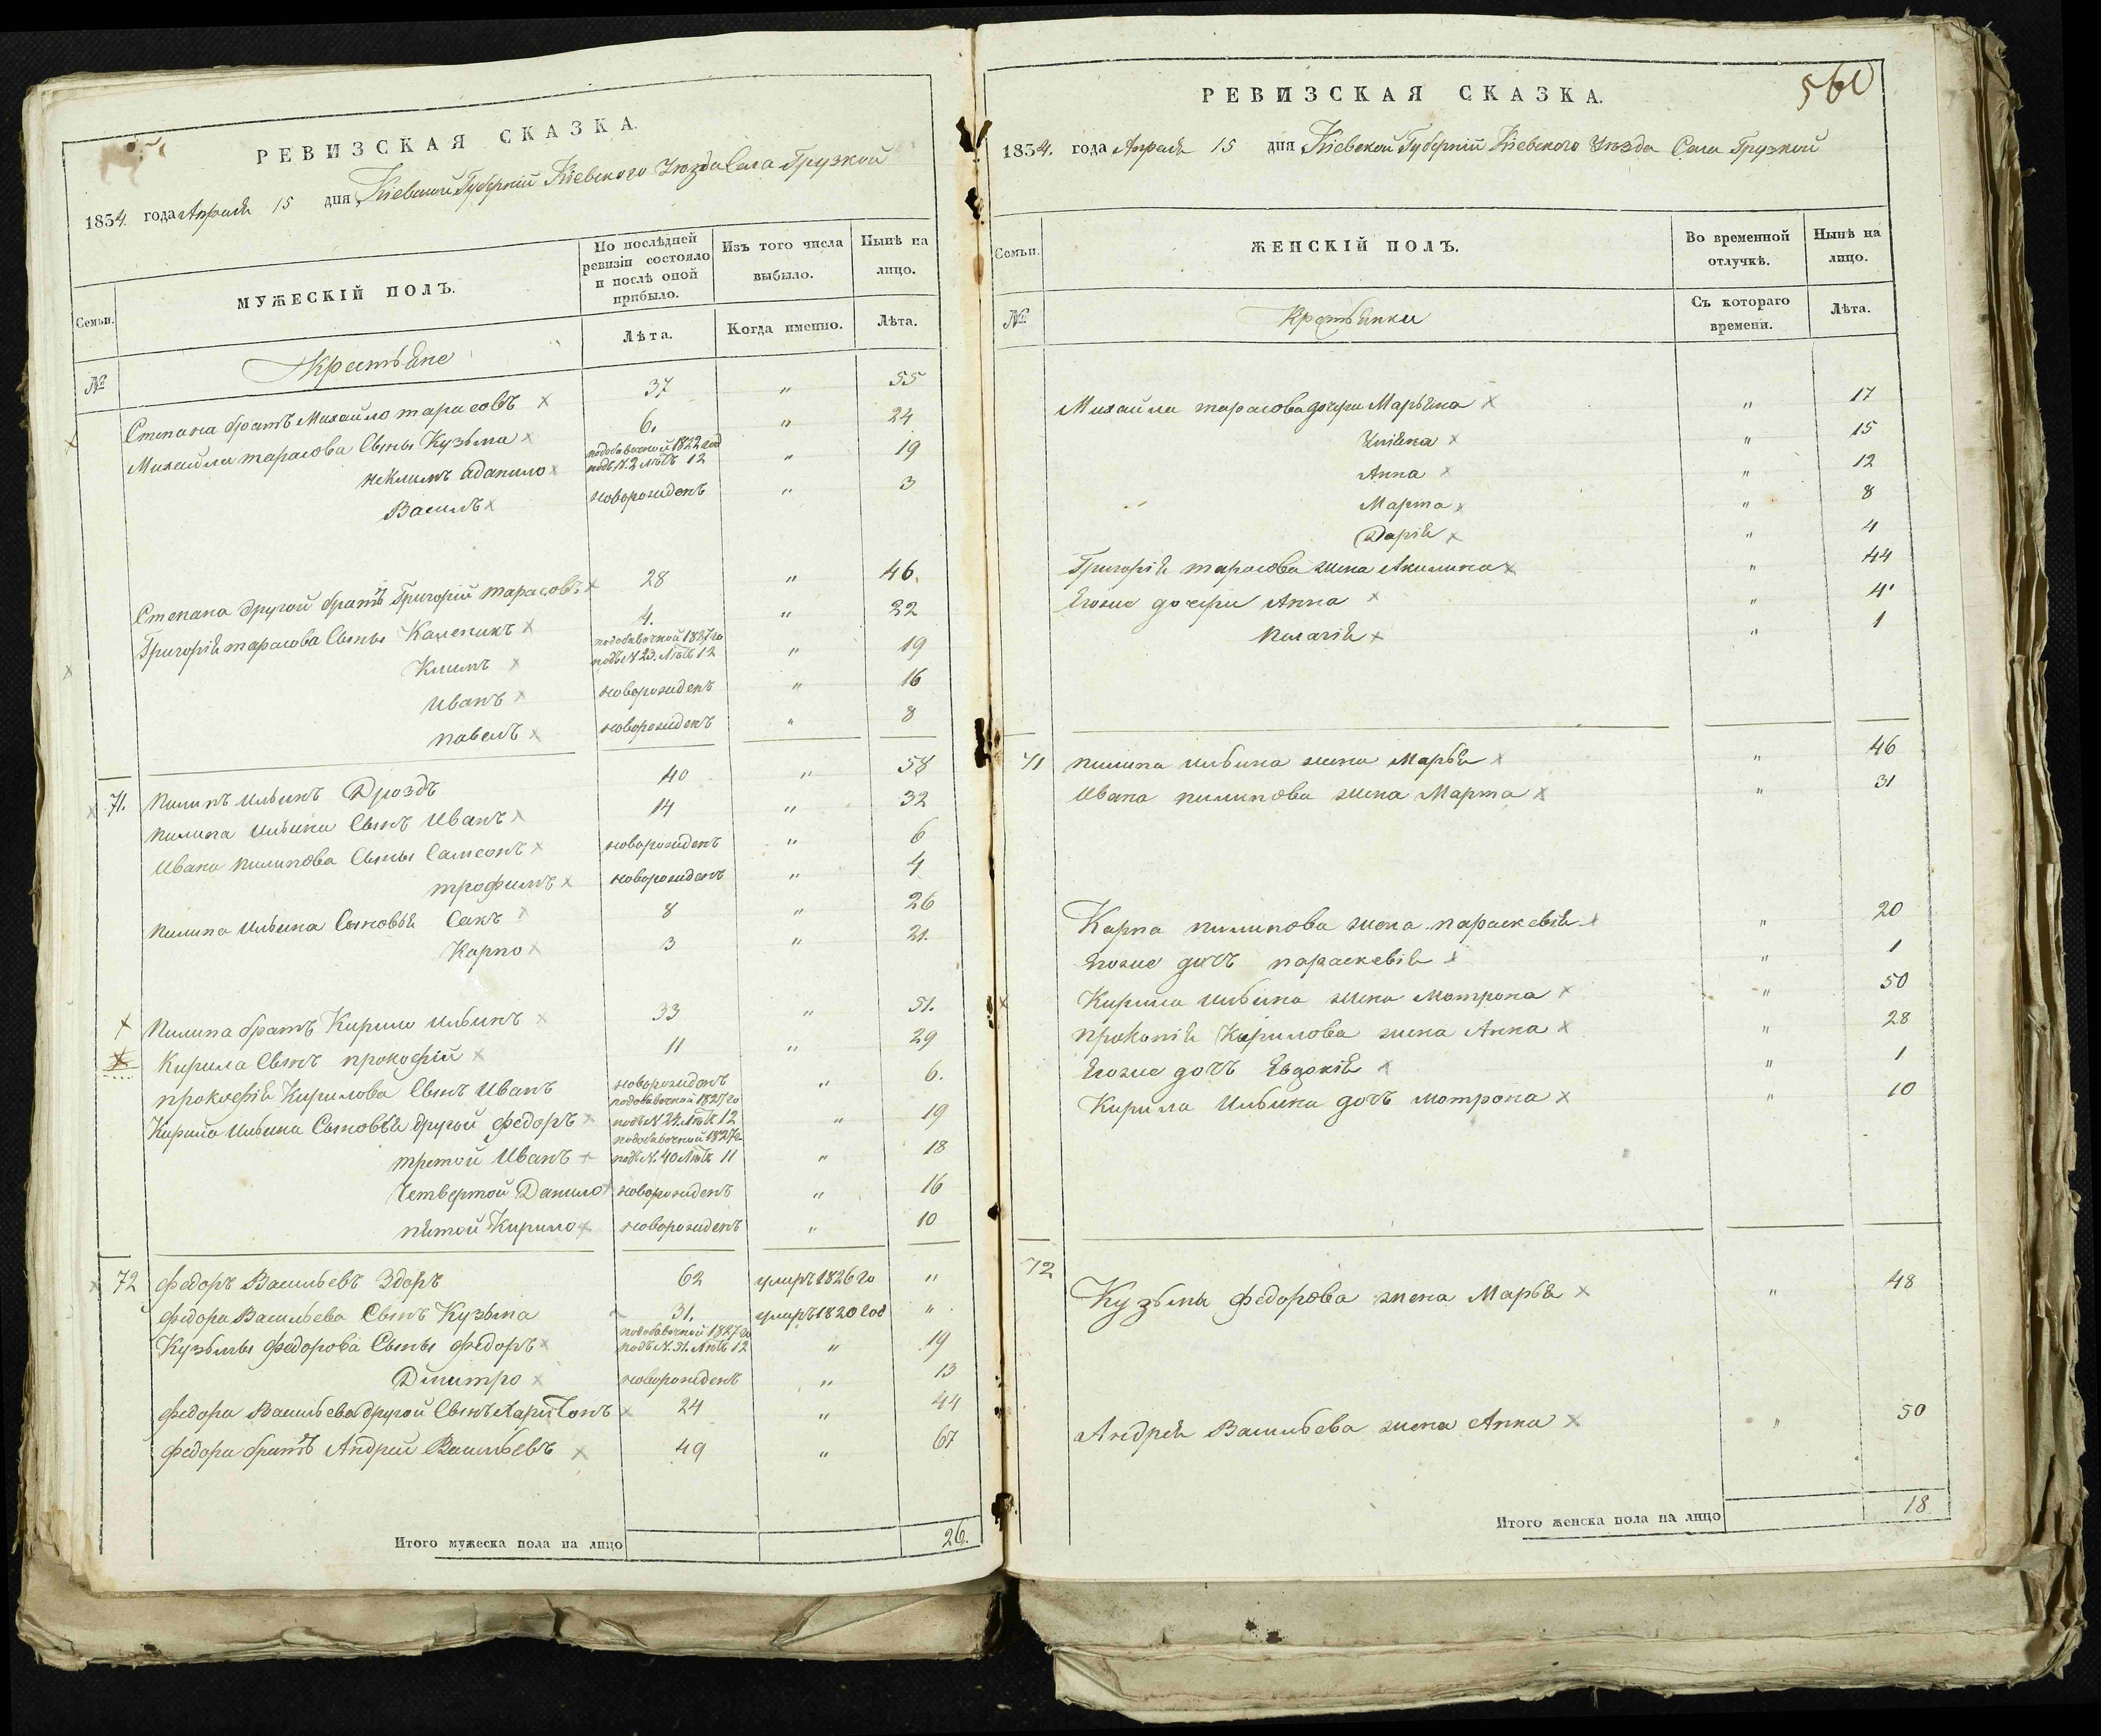 РЕВИЗСКАЯ СКАЗКА.
1834. года Апреля 15 дня Кіевской Губерніи Кіевского Уѣзда Села Грузкой
Семьи.
МУЖЕСКІЙ ПОЛЪ.
По послѣдней ревизіи состояло и послѣ оной прибыло.
Изъ того числа выбыло.
Нынѣ на лицо.
Лѣта.
Когда именно.
Лѣта.
№
Крестьяне
Степана братъ Михайло тарасовъ 37 " 55
Михайла тарасова Сыны Кузьма 6. " 24
Данило подобавочной 1822 год подъ N. 2 лѣтъ 12 " 19
Василь новорожденъ " 3
Степана другой братъ Григорій тарасовъ 28 " 46.
Григорія тарасова Сыны Каленикъ 4. " 22
Климъ подобавочной 1827 го подъ N 23. Лѣтъ 12 " 19
иванъ новорожденъ " 16
павелъ новорожденъ " 8
71. пилипъ ильинъ Дроздъ 40 " 58
пилипа ильина Сынъ Иванъ 14 " 32
Ивана пилипова Сыны Самсонъ новорожденъ " 6
трофимъ новорожденъ " 4
пилипа ильина Сыновья Сакъ 8 " 26
Карпо 3 " 21.
пилипа братъ Кирило ильинъ 33 " 51.
Кирила Сынъ прокофій 11 " 29
прокофія Кирилова Сынъ Иванъ новорожденъ " 6.
Кирила ильина Сыновья другой федоръ подобавочной 1827 го подъ N 24. Лѣтъ 12 " 19
третой Иванъ подобавочной 1827 го подъ N. 40 Лѣтъ 11 " 18
Четвертой Данило новорожденъ " 16
пятой Кирило новорожденъ " 10
72 федоръ Васильевъ Здоръ 62 умеръ 1826 го "
федора Васильева Сынъ Кузьма 31. умеръ 1820 год "
Кузьмы федорова Сыны федоръ подобавочной 1827 го подъ N. 31. Лѣтъ 12 " 19
Дмитро новорожденъ " 13
федора Васильева другой Сынъ Харитонъ 24 " 44
федора братъ Андрей Васильевъ 49 " 67
Итого мужеска пола на лицо 26.
560
РЕВИЗСКАЯ СКАЗКА.
1834. года Апреля 15 дня Кіевской Губерніи Кіевского Уѣзда Села Грузкой
Семьи.
ЖЕНСКІЙ ПОЛЪ.
Во временной отлучкѣ.
Нынѣ на лицо.
№
Крестьянки
Съ котораго времени.
Лѣта.
Михайла тарасова дочери Марьяна " 17
Ульяна " 15
Анна " 12
Марта " 8
Дарія " 4
Григорія тарасова жена Акилина " 44
Егоже дочери Анна " 4
пелагія " 1
71 пилипа ильина жена Марья " 46
Ивана пилипова жена Марта " 31
Карпа пилипова жена параскевія " 20
Егоже дочъ параскевія " 1
Кирила ильина жена Мотрона " 50
прокопія Кирилова жена Анна " 28
Егоже дочъ Евдокія " 1
Кирила Ильина дочъ мотрона " 10
72
Кузьмы федорова жена Марья " 48
Андрея Васильева жена Анна " 50
Итого женска пола на лицо 18